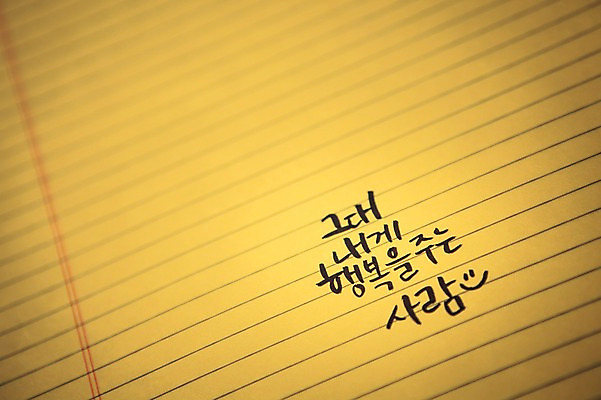 그대
내게
행복을 주는
사람